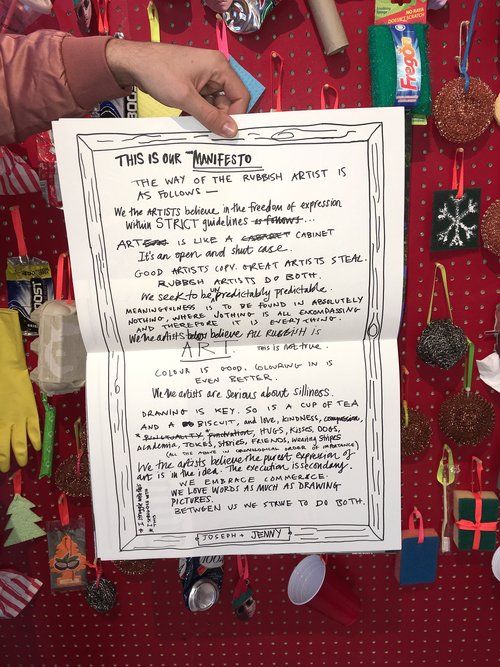 THIS IS OUR MANIFESTO
THE WAY OF THE RUBBISH ARTIST IS
AS FOLLOWS —
We the ARTISTS believe in the freedom of expression
Within STRICT guidelines as follows...
ART IS LIKE A CABINET
It's an open and shut case.
GOOD ARTISTS COPY. GREAT ARTISTS STEAL.
RUBBISH ARTISTS DO BOTH.
We seek to be UNpredictably predictable.
MEANINGFULNESS IS TO BE FOUND IN ABSOLUTELY
NOTHING, WHERE NOTHING IS ALL ENCOMPASSING
AND THEREFORE IT IS EVERYTHING.
We the artists believe ALL RUBBISH IS
ART. This is not true.
COLOUR IS GOOD. COLOURING IN IS
EVEN BETTER.
We the artists are serious about silliness.
DRAWING IS KEY. SO IS A CUP OF TEA
AND A BISCUIT, and love, KINDNESS, compassion,
punctuation, HUGS, KISSES, DOGS,
Academia, JOKES, Stories, FRIENDS, wearing stripes
(ALL THE ABOVE IN CHRONOLOGICAL ORDER OF IMPORTANCE)
We the artists believe the purest expression of
art is in the idea. The execution is secondary.
WE EMBRACE COMMERCE.
WE LOVE WORDS AS MUCH AS DRAWING
PICTURES.
BETWEEN US WE STRIVE TO DO BOTH.
* I struggle with this
JOSEPH + JENNY
Frego
DOESN'T SCRATCH